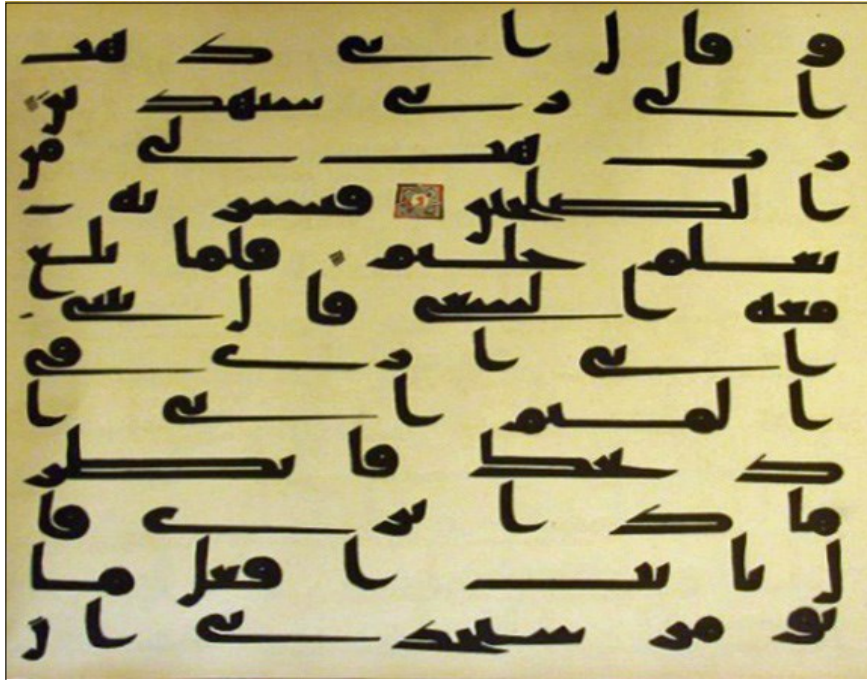 و قال انى ذهب
الى ربى سيهدين
رب هب لى من
الصلحين فبشرنه
بغلم حليم فلما بلغ
معه السعى قال يبنى
انى ارى فى
المنم انى ا
ذبحك فانظر
ماذا ترى قا
ل يابت افعل ما
تومر ستجدنى ان